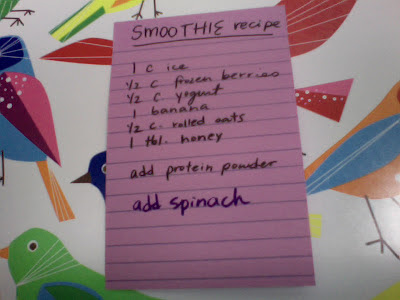 SMOOTHIE recipe
1 c ice
1/2 c. frozen berries
1/2 c. yogurt
1 banana
1/2 c. rolled oats
1 tbl. honey
add protein powder
add spinach